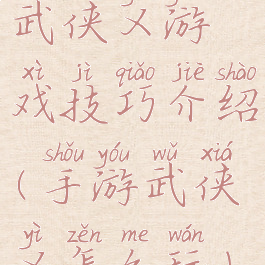 武侠乂游
xì jì qiǎo jiè shào
戏技巧介绍
shǒu yóu wǔ xiá
(手游武侠
yì zěn me wán
乂怎么玩)